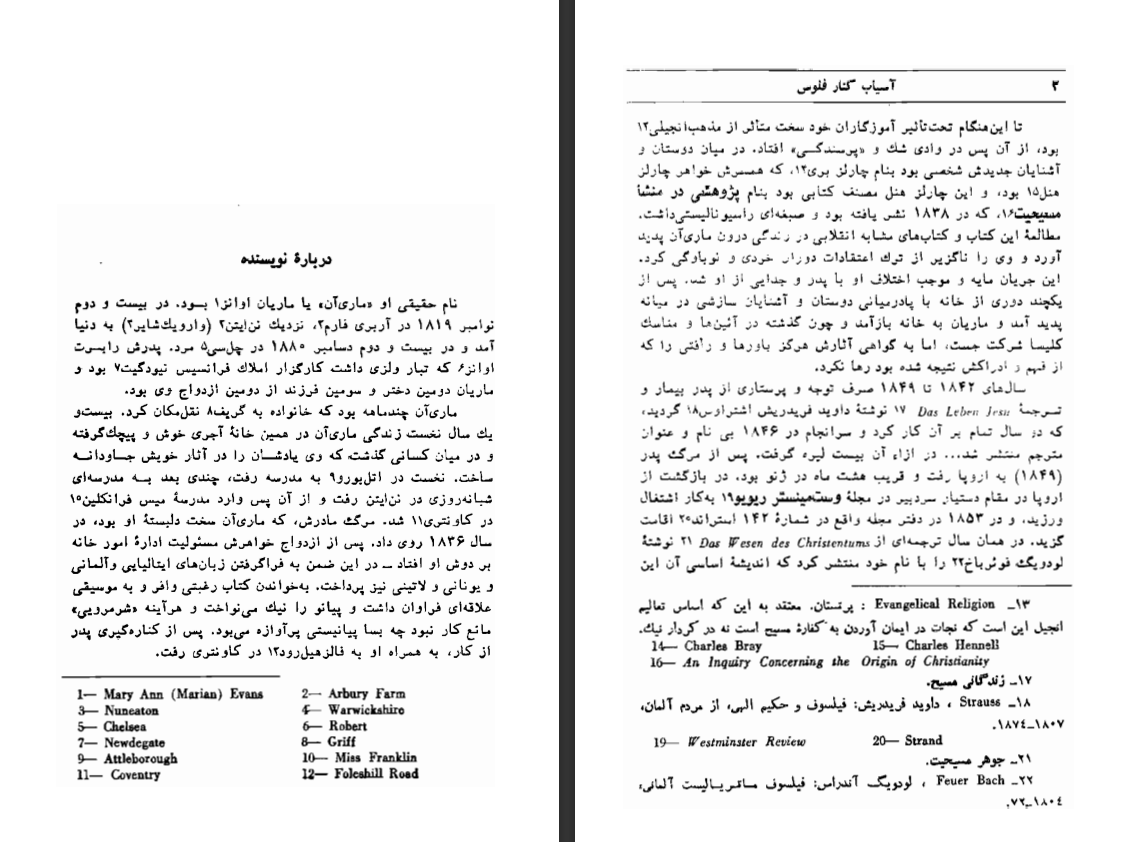 دربارهٔ نویسنده
نام حقیقی او «ماری‌آن» یا ماریان اوانز۱ بسود. در بیست و دوم
نوامبر ۱۸۱۹ در آربری فارم۲، نزدیك نن‌ایتن۳ (وارویك‌شایر۴) به دنیا
آمد و در بیست و دوم دسامبر ۱۸۸۰ در چل‌سی۵ مرد. پدرش رابـرت
اوانز۶ که تبار ولزی داشت کارگزار املاك فرانسیس نیودگیت۷ بود و
ماریان دومین دختر و سومین فرزند از دومین ازدواج وی بود.
ماری‌آن چندماهه بود که خانواده به گریف۸ نقل‌مکان کرد. بیست‌و
یك سال نخست زندگی ماری‌آن در همین خانهٔ آجری خوش و پیچك‌گرفته
و در میان کسانی گذشت که وی یادشـان را در آثار خویش جـاودانـه
ساخت. نخست در اتل‌بورو۹ به مدرسه رفت، چندی بعد بـه مدرسه‌ای
شبانه‌روزی در نن‌ایتن رفت و از آن پس وارد مدرسهٔ میس فرانکلین۱۰
در کاونتری۱۱ شد. مرگ مادرش، که ماری‌آن سخت دلبستهٔ او بود، در
سال ۱۸۳۶ روی داد. پس از ازدواج خواهرش مسئولیت ادارهٔ امور خانه
بر دوش او افتاد ــ در این ضمن به فراگرفتن زبان‌های ایتالیایی وآلمانی
و یونانی و لاتینی نیز پرداخت. به‌خواندن کتاب رغبتی وافر و به موسیقی
علاقه‌ای فراوان داشت و پیانو را نیك می‌نواخت و هرآینه «شرمرویی»
مانع کار نبود چه بسا پیانیستی پرآوازه می‌بود. پس از کناره‌گیری پدر
از کار، به همراه او به فالزهیل‌رود۱۲ در کاونتری رفت.
1— Mary Ann (Marian) Evans 2— Arbury Farm
3— Nuneaton 4— Warwickshire
5— Chelsea 6— Robert
7— Newdegate 8— Griff
9— Attleborough 10— Miss Franklin
11— Coventry 12— Foleshill Road
۲ آسیاب کنار فلوس
تا این‌هنگام تحت‌تأثیر آموزگاران خود سخت متأثر از مذهب‌انجیلی۱۳
بود، از آن پس در وادی شك و «پرسندگـی» افتاد. در میان دوستان و
آشنایان جدیدش شخصی بود بنام چارلز بری۱۴، که همسرش خواهر چارلز
هنل۱۵ بود، و این چارلز هنل مصنف کتابی بود بنام پژوهشی در منشأ
مسیحیت۱۶، که در ۱۸۳۸ نشر یافته بود و صبغه‌ای راسیونالیستی‌داشت.
مطالعهٔ این کتاب و کتاب‌های مشابه انقلابی در زندگی درون ماری‌آن پدید
آورد و وی را ناگزیر از ترك اعتقادات دوران خردی و نوباوگی کرد.
این جریان مایه و موجب اختلاف او با پدر و جدایی از او شد. پس از
یکچند دوری از خانه با پادرمیانی دوستان و آشنایان سازشی در میانه
پدید آمد و ماریان به خانه بازآمد و چون گذشته در آئین‌ها و مناسك
کلیسا شرکت جست، اما به گواهی آثارش هرگز باورها و رأفتی را که
از فهم و ادراکش نتیجه شده بود رها نکرد.
سال‌های ۱۸۴۲ تا ۱۸۴۹ صرف توجه و پرستاری از پدر بیمار و
تـرجمهٔ Das Leben Jesu ۱۷ نوشتهٔ داوید فریدریش اشتراوس۱۸ گردید،
که دو سال تمام بر آن کار کرد و سرانجام در ۱۸۴۶ بی نام و عنوان
مترجم منتشر شد... در ازاء آن بیست لیره گرفت. پس از مرگ پدر
(۱۸۴۹) به اروپا رفت و قریب هشت ماه در ژنو بود. در بازگشت از
اروپا در مقام دستیار سردبیر در مجلهٔ وست‌مینستر ریویو۱۹ به‌کار اشتغال
ورزید، و در ۱۸۵۳ در دفتر مجله واقع در شمارهٔ ۱۴۲ استراند۲۰ اقامت
گزید. در همان سال ترجمه‌ای از Das Wesen des Christentums ۲۱ نوشتهٔ
لودویگ فوئرباخ۲۲ را با نام خود منتشر کرد که اندیشهٔ اساسی آن این
۱۳ــ Evangelical Religion : پرتستان. معتقد به این که اساس تعالیم
انجیل این است که نجات در ایمان آوردن به کفارهٔ مسیح است نه در کردار نیك.
14— Charles Bray 15— Charles Hennell
16— An Inquiry Concerning the Origin of Christianity
۱۷ــ زندگانی مسیح.
۱۸ــ Strauss ، داوید فریدریش: فیلسوف و حکیم الهی، از مردم آلمان،
۱۸۰۷ــ۱۸۷۴.
19— Westminster Review 20— Strand
۲۱ــ جوهر مسیحیت.
۲۲ــ Feuer Bach ، لودویگ آندراس: فیلسوف ماتریالیست آلمانی،
۱۸۰۴ــ۷۲.